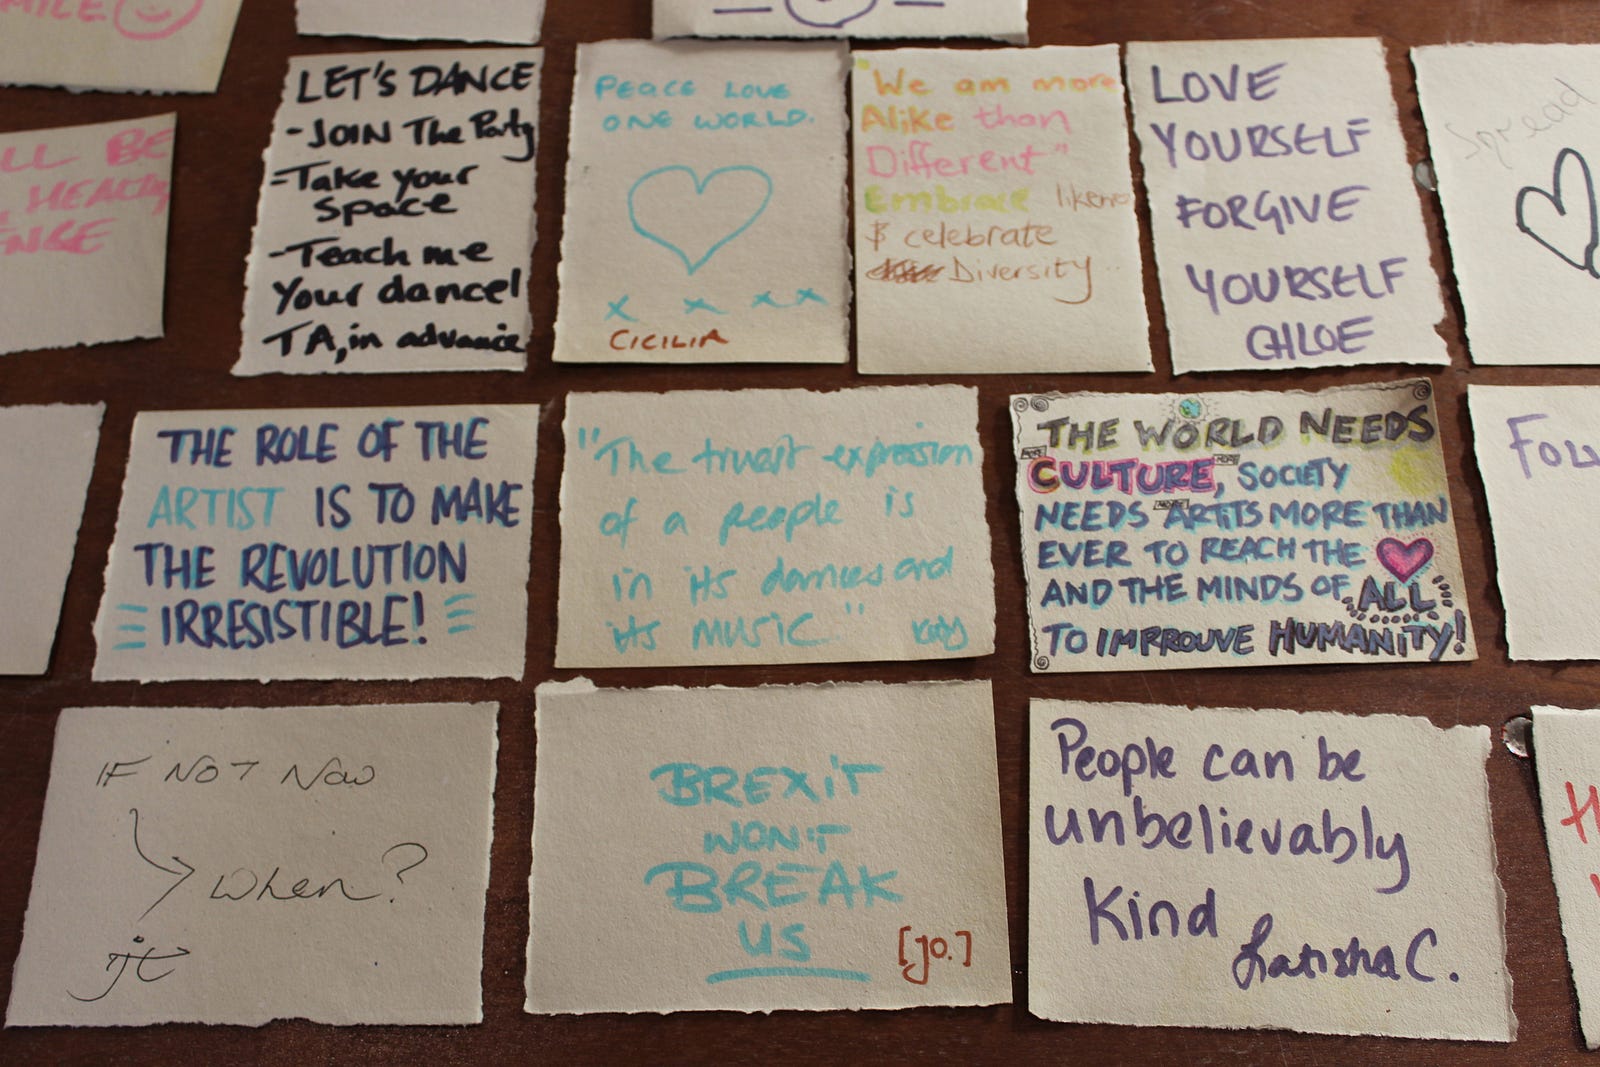 MILE
LL BE
HEALTH
LET'S DANCE
-JOIN The Party
-Take your
space
-Teach me
Your dance!
TA, in advance
PEACE LOVE
ONE WORLD.
x x x x
CICILIA
"We am more
Alike than
Different"
Embrace
& celebrate
Diversity..
LOVE
YOURSELF
FORGIVE
YOURSELF
CHLOE
Spread
THE ROLE OF THE
ARTIST IS TO MAKE
THE REVOLUTION
IRRESISTIBLE!
"The truest expression
of a people is
in its dances and
its MUSIC." Katy
THE WORLD NEEDS
MORE CULTURE, MORE SOCIETY
NEEDS MORE ARTITS MORE THAN
EVER TO REACH THE
AND THE MINDS OF ALL
TO IMPROUVE HUMANITY!
IF NOT NOW
When?
jt
BREXIT
WON'T
BREAK
US
[JO.]
People can be
unbelievably
Kind
Latisha C.